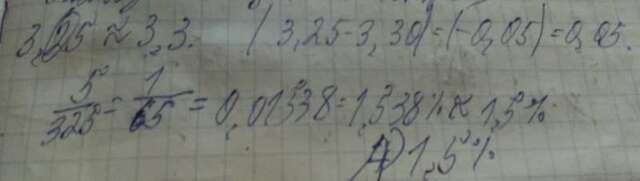 3,25 ≈ 3,3. | 3,25-3,30|=|-0,05|=0,05.
5/325 = 1/65 = 0,01538=1,538%≈ 1,5%
A) 1,5%